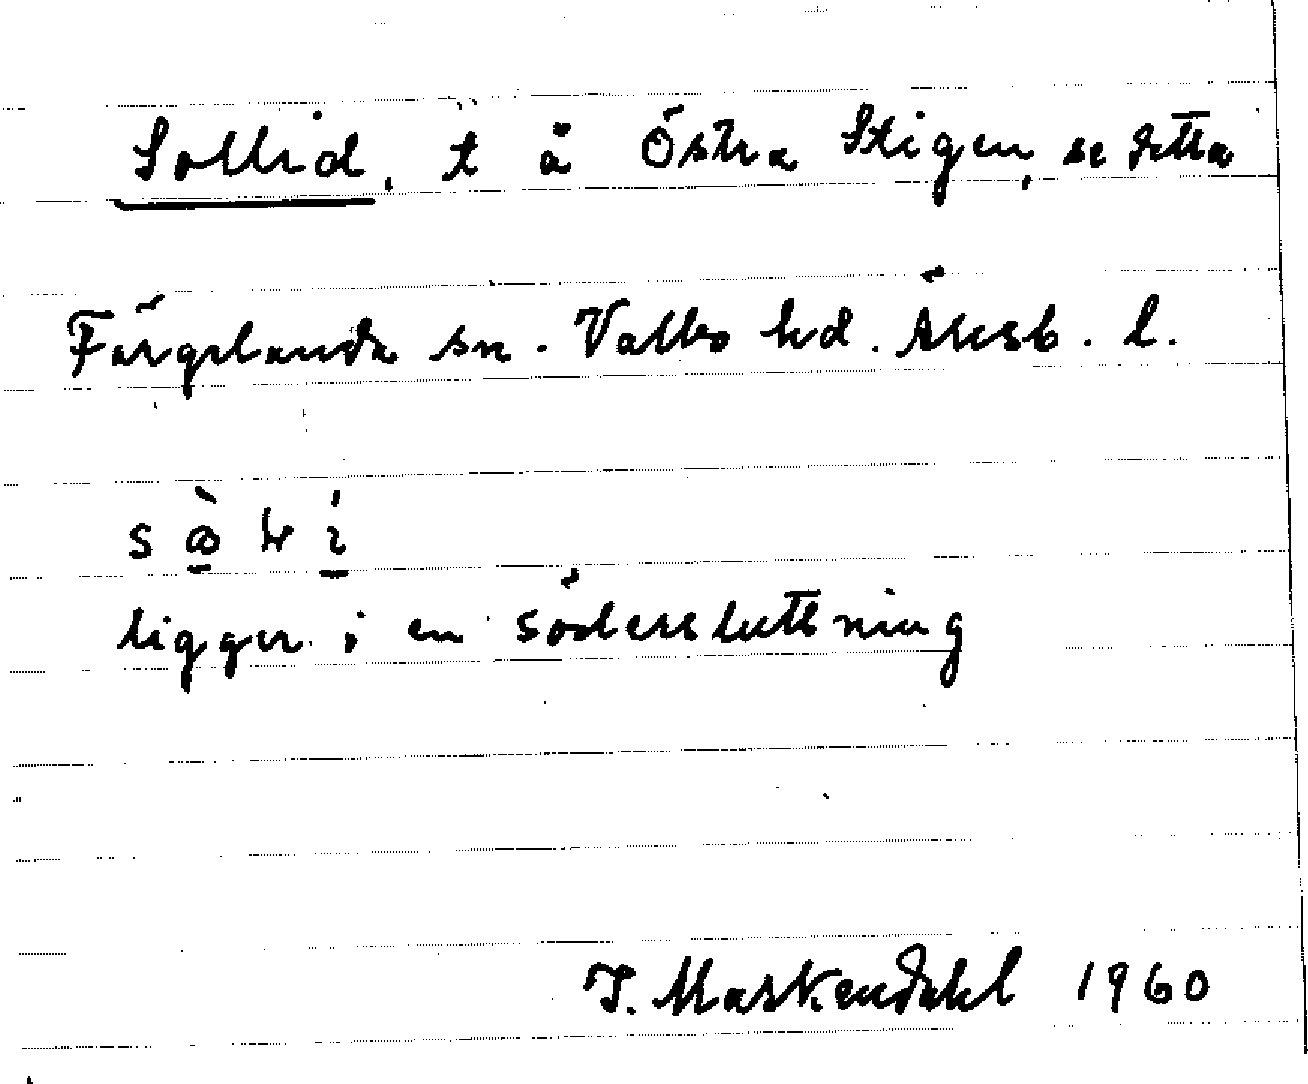 Sollid, t å Östra Stigen, se detta
Färgelanda sn. Valbo hd. Älvsb. l.
ligger i en södersluttning
I. Maskendahl 1960